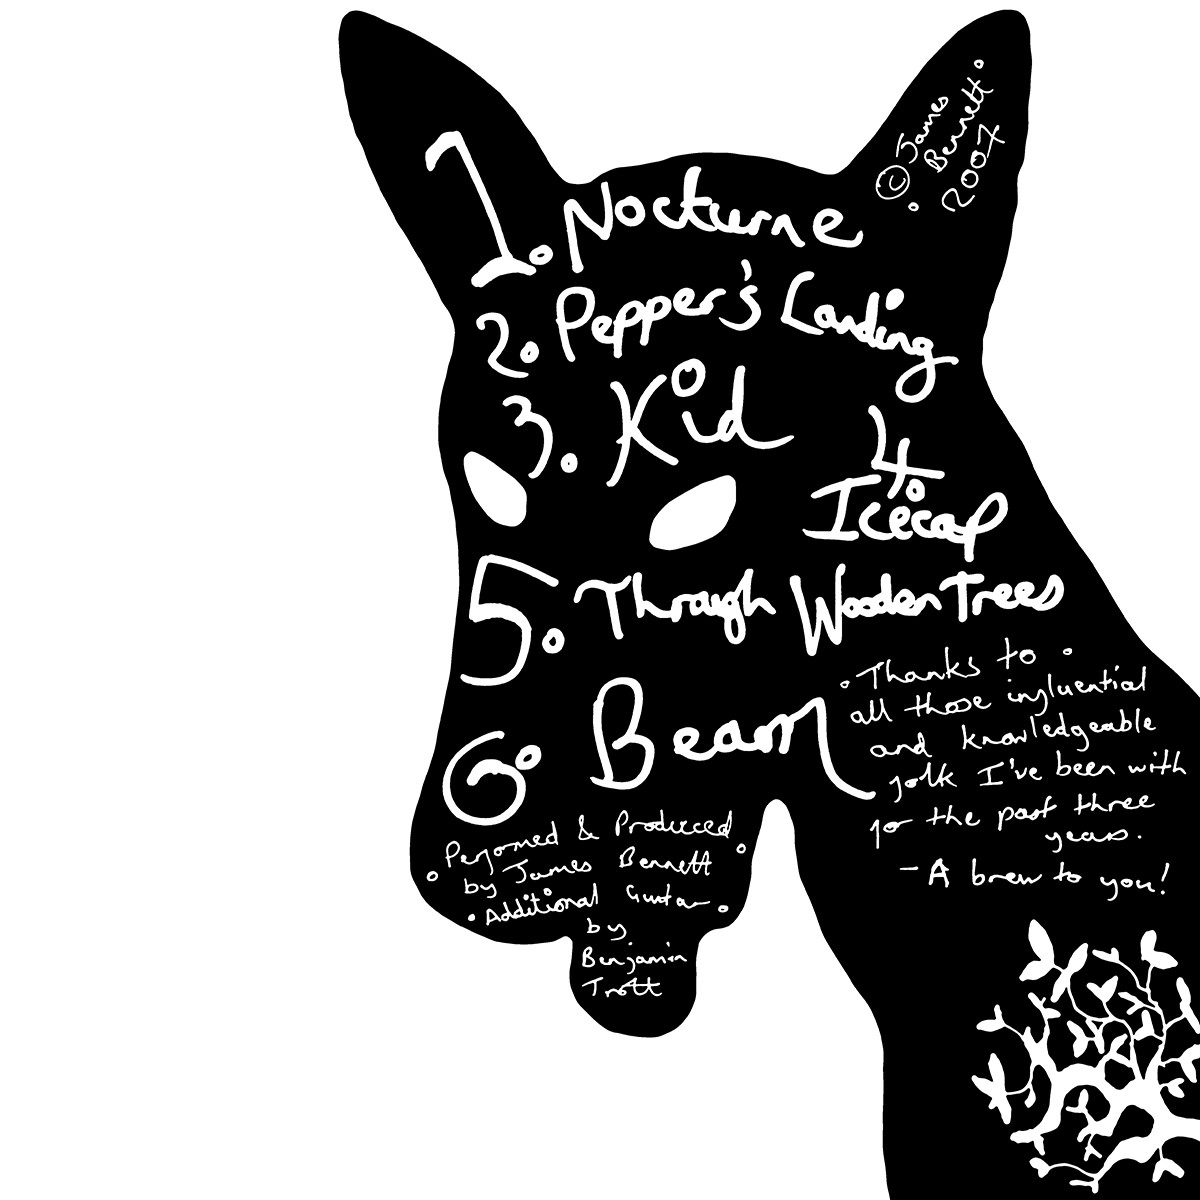 © James
Bennett
2007
1. Nocturne
2. Pepper's Landing
3. Kid
4.
Icecap
5. Through Wooden Trees
6. Beam
Thanks to
all those influential
and knowledgeable
folk I've been with
for the past three
years.
- A brew to you!
Performed & Produced
by James Bennett
Additional Guitar
by
Benjamin
Trott